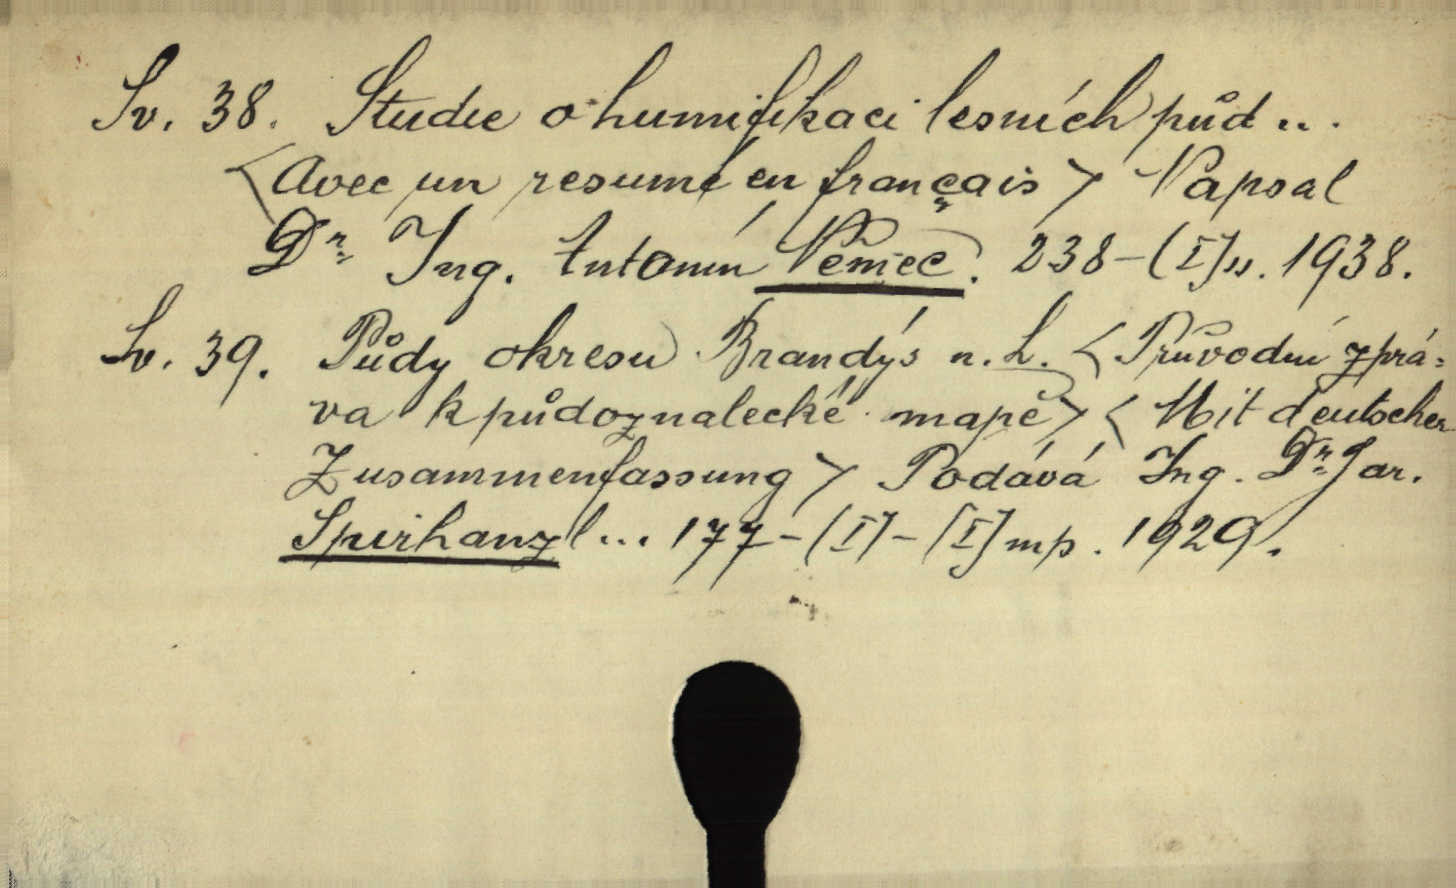 Sv. 38. Studie o humifikaci lesních půd...
<Avec un resumé en français> Napsal
Dr Ing. Antonín Němec. 238-(I)s. 1938.
Sv. 39. Půdy okresu Brandýs n. L. <Průvodní zprá=
va k půdoznalecké mapě> <Mit deutscher
Zusammenfassung> Podává Ing. Dr Jar.
Spirhanzl... 177-(I)-[I]mp. 1929.